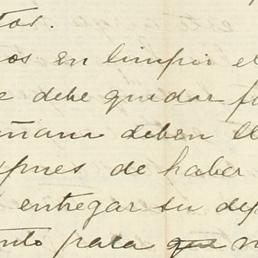 tos.
os en limpiar el
e debe quedar
ñana deben
spues de haber
entregar su dep
nto para que